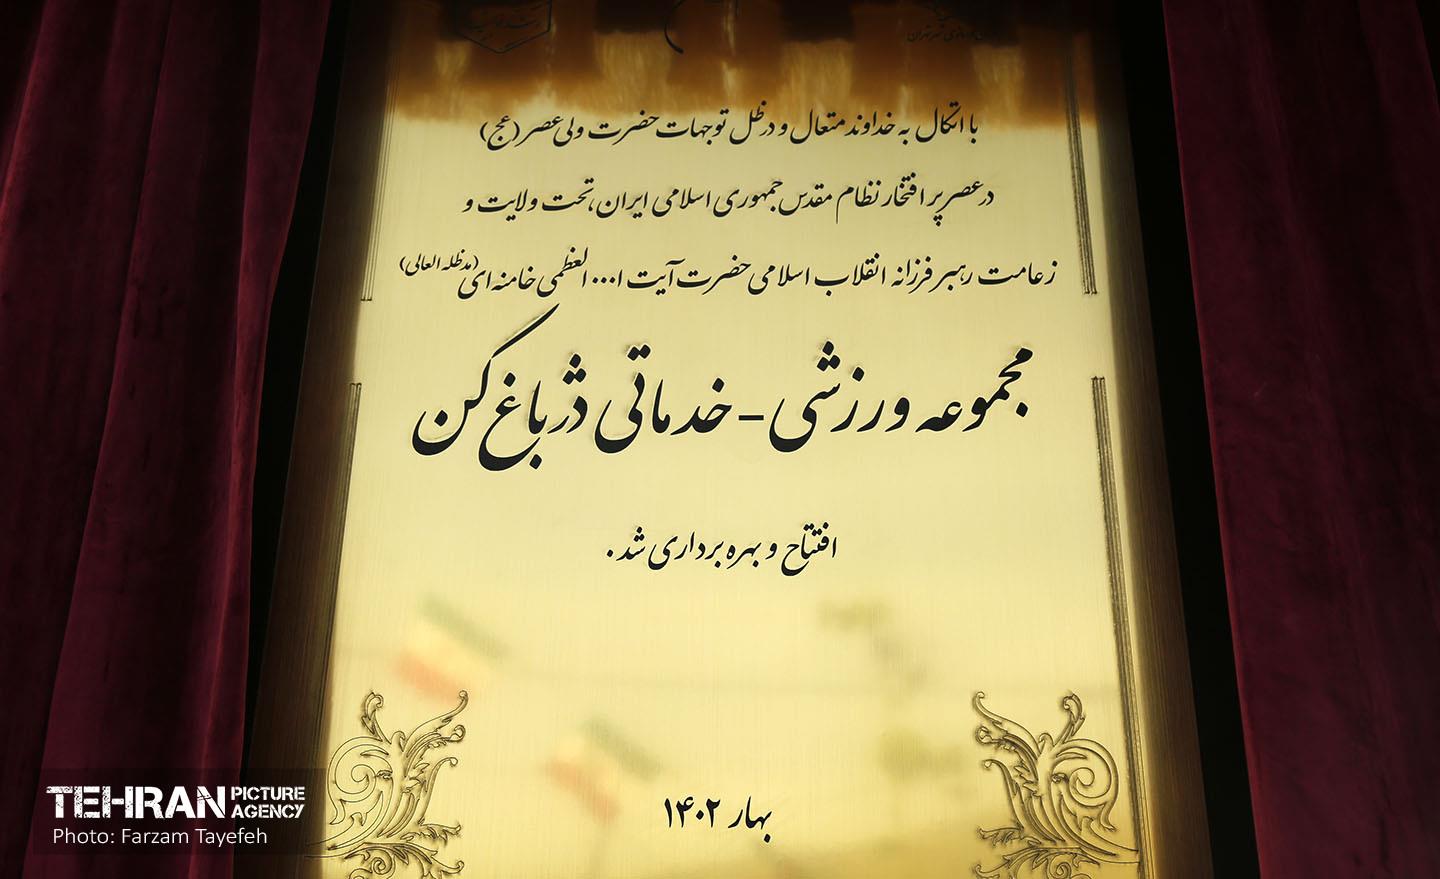 با اتکال به خداوند متعال و در ظل توجهات حضرت ولی عصر (عج)
در عصر پر افتخار نظام مقدس جمهوری اسلامی ایران، تحت ولایت و
زعامت رهبر فرزانه انقلاب اسلامی حضرت آیت ا... العظمی خامنه ای (مدظله العالی)
مجموعه ورزشی - خدماتی دژ باغ کن
افتتاح و بهره برداری شد.
بهار ۱۴۰۲
TEHRAN PICTURE AGENCY
Photo: Farzam Tayefeh